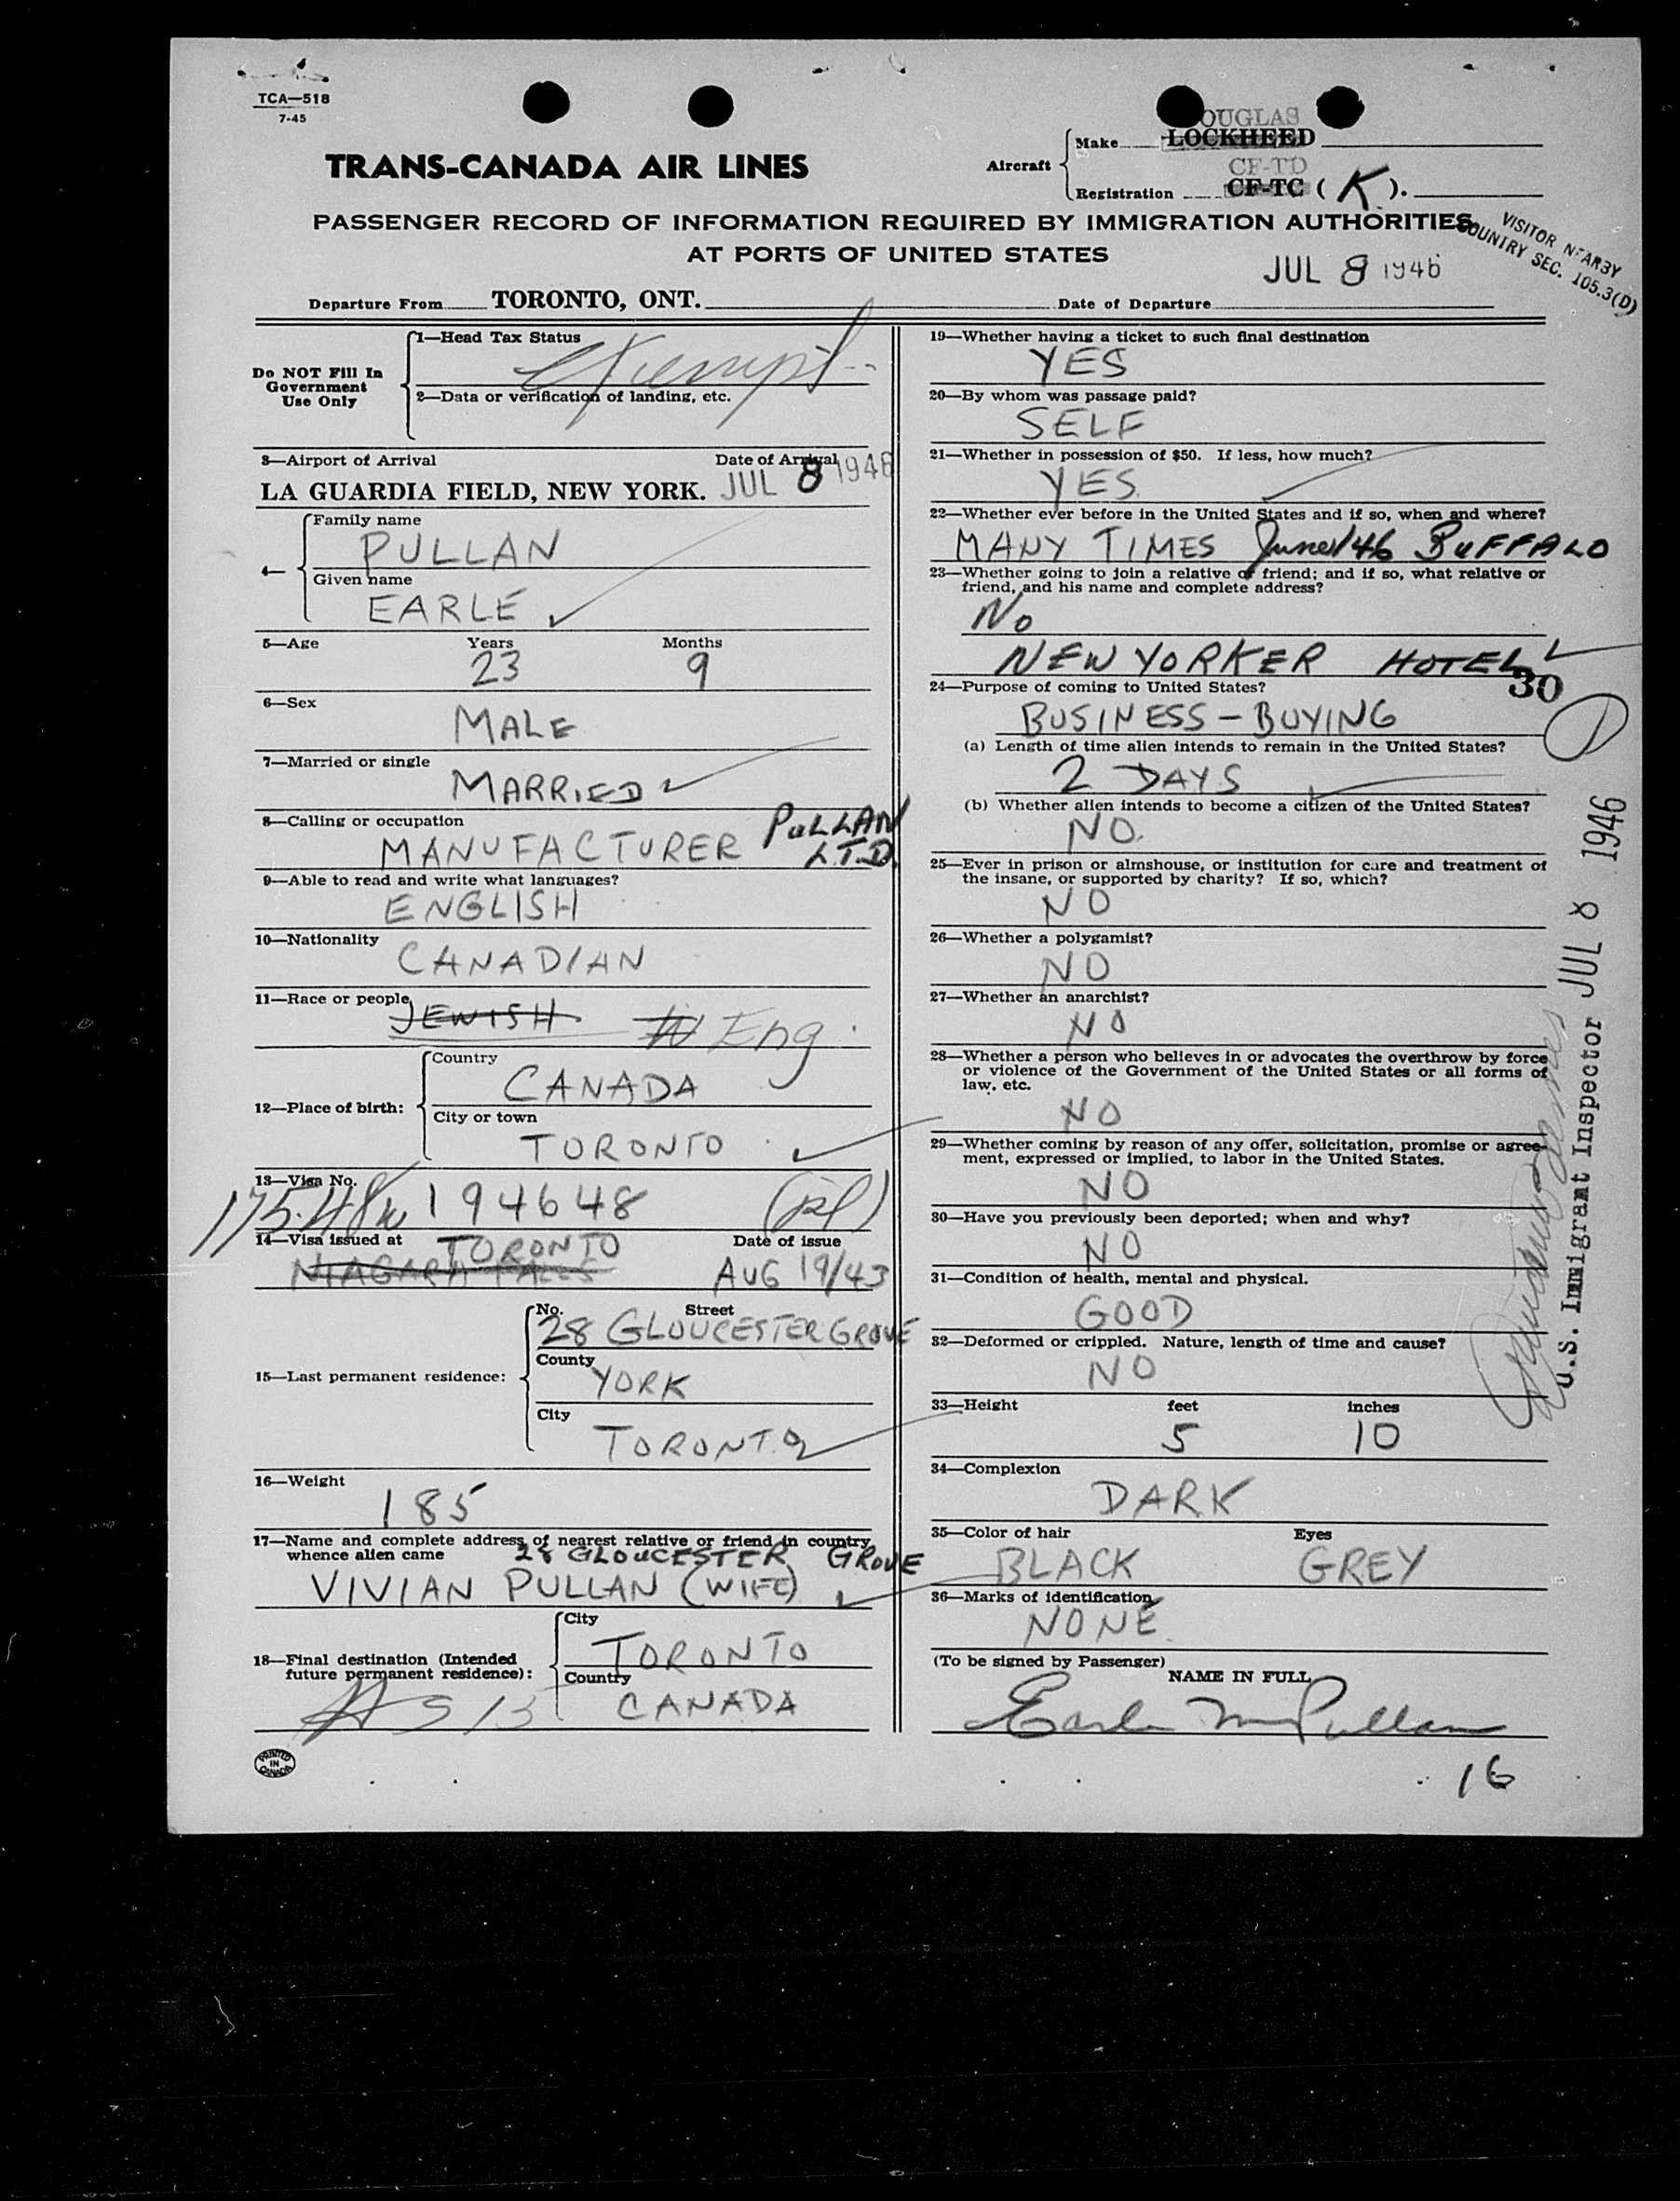 TCA—518
7-45
TRANS-CANADA AIR LINES
Aircraft
Make
OUGLAS
LOCKHEED
CF-TD
Registration CF-TC ( K ).
PASSENGER RECORD OF INFORMATION REQUIRED BY IMMIGRATION AUTHORITIES
AT PORTS OF UNITED STATES
VISITOR NEARBY
COUNTRY SEC. 105.3(D)
JUL 8 1946
Departure From TORONTO, ONT.
Date of Departure
Do NOT Fill In
Government
Use Only
1—Head Tax Status
exempt
2—Data or verification of landing, etc.
3—Airport of Arrival Date of Arrival
LA GUARDIA FIELD, NEW YORK. JUL 8 1946
4—
Family name
PULLAN
Given name
EARLE
5—Age Years Months
23 9
6—Sex
MALE
7—Married or single
MARRIED
8—Calling or occupation
MANUFACTURER PULLAN
LTD.
9—Able to read and write what languages?
ENGLISH
10—Nationality
CANADIAN
11—Race or people
JEWISH Eng.
12—Place of birth:
Country
CANADA
City or town
TORONTO
13—Visa No.
194648
14—Visa issued at TORONTO Date of issue
NIAGARA FALLS AUG 19/43
15—Last permanent residence:
No. Street
28 GLOUCESTER GROVE
County
YORK
City
TORONTO
16—Weight
185
17—Name and complete address of nearest relative or friend in country
whence alien came 28 GLOUCESTER GROVE
VIVIAN PULLAN (WIFE)
18—Final destination (Intended
future permanent residence):
City
TORONTO
Country
CANADA
PRINTED
IN
CANADA
19—Whether having a ticket to such final destination
YES
20—By whom was passage paid?
SELF
21—Whether in possession of $50. If less, how much?
YES
22—Whether ever before in the United States and if so, when and where?
MANY TIMES June/46 BUFFALO
23—Whether going to join a relative or friend; and if so, what relative or
friend, and his name and complete address?
No
NEW YORKER HOTEL
30
24—Purpose of coming to United States?
BUSINESS - BUYING
(a) Length of time alien intends to remain in the United States?
2 DAYS
(b) Whether alien intends to become a citizen of the United States?
NO.
25—Ever in prison or almshouse, or institution for care and treatment of
the insane, or supported by charity? If so, which?
NO
26—Whether a polygamist?
NO
27—Whether an anarchist?
NO
28—Whether a person who believes in or advocates the overthrow by force
or violence of the Government of the United States or all forms of
law, etc.
NO
29—Whether coming by reason of any offer, solicitation, promise or agree-
ment, expressed or implied, to labor in the United States.
NO
30—Have you previously been deported; when and why?
NO
31—Condition of health, mental and physical.
GOOD
32—Deformed or crippled. Nature, length of time and cause?
NO
33—Height feet inches
5 10
34—Complexion
DARK
35—Color of hair Eyes
BLACK GREY
36—Marks of identification
NONE
(To be signed by Passenger)
NAME IN FULL
Earle M Pullan
16
U.S. Immigrant Inspector JUL 8 1946